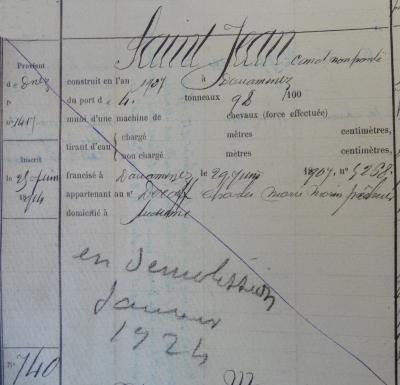 Saint Jean Canot non ponté
Provient
de Dnez
f°
n° 1417
construit en l'an 1907 à Douarnenez
du port de 4. tonneaux 92 /100
muni d'une machine de chevaux (force effectuée)
tirant d'eau { chargé mètres centimètres,
non chargé mètres centimètres,
Inscrit
le 25 juin
1914
francisé à Douarnenez le 29 juin 1907, n° 5238,
appartenant au sr Charles Marie marin pêcheur
domicilié à Audierne
en démolission
Janvier
1924
N° 740